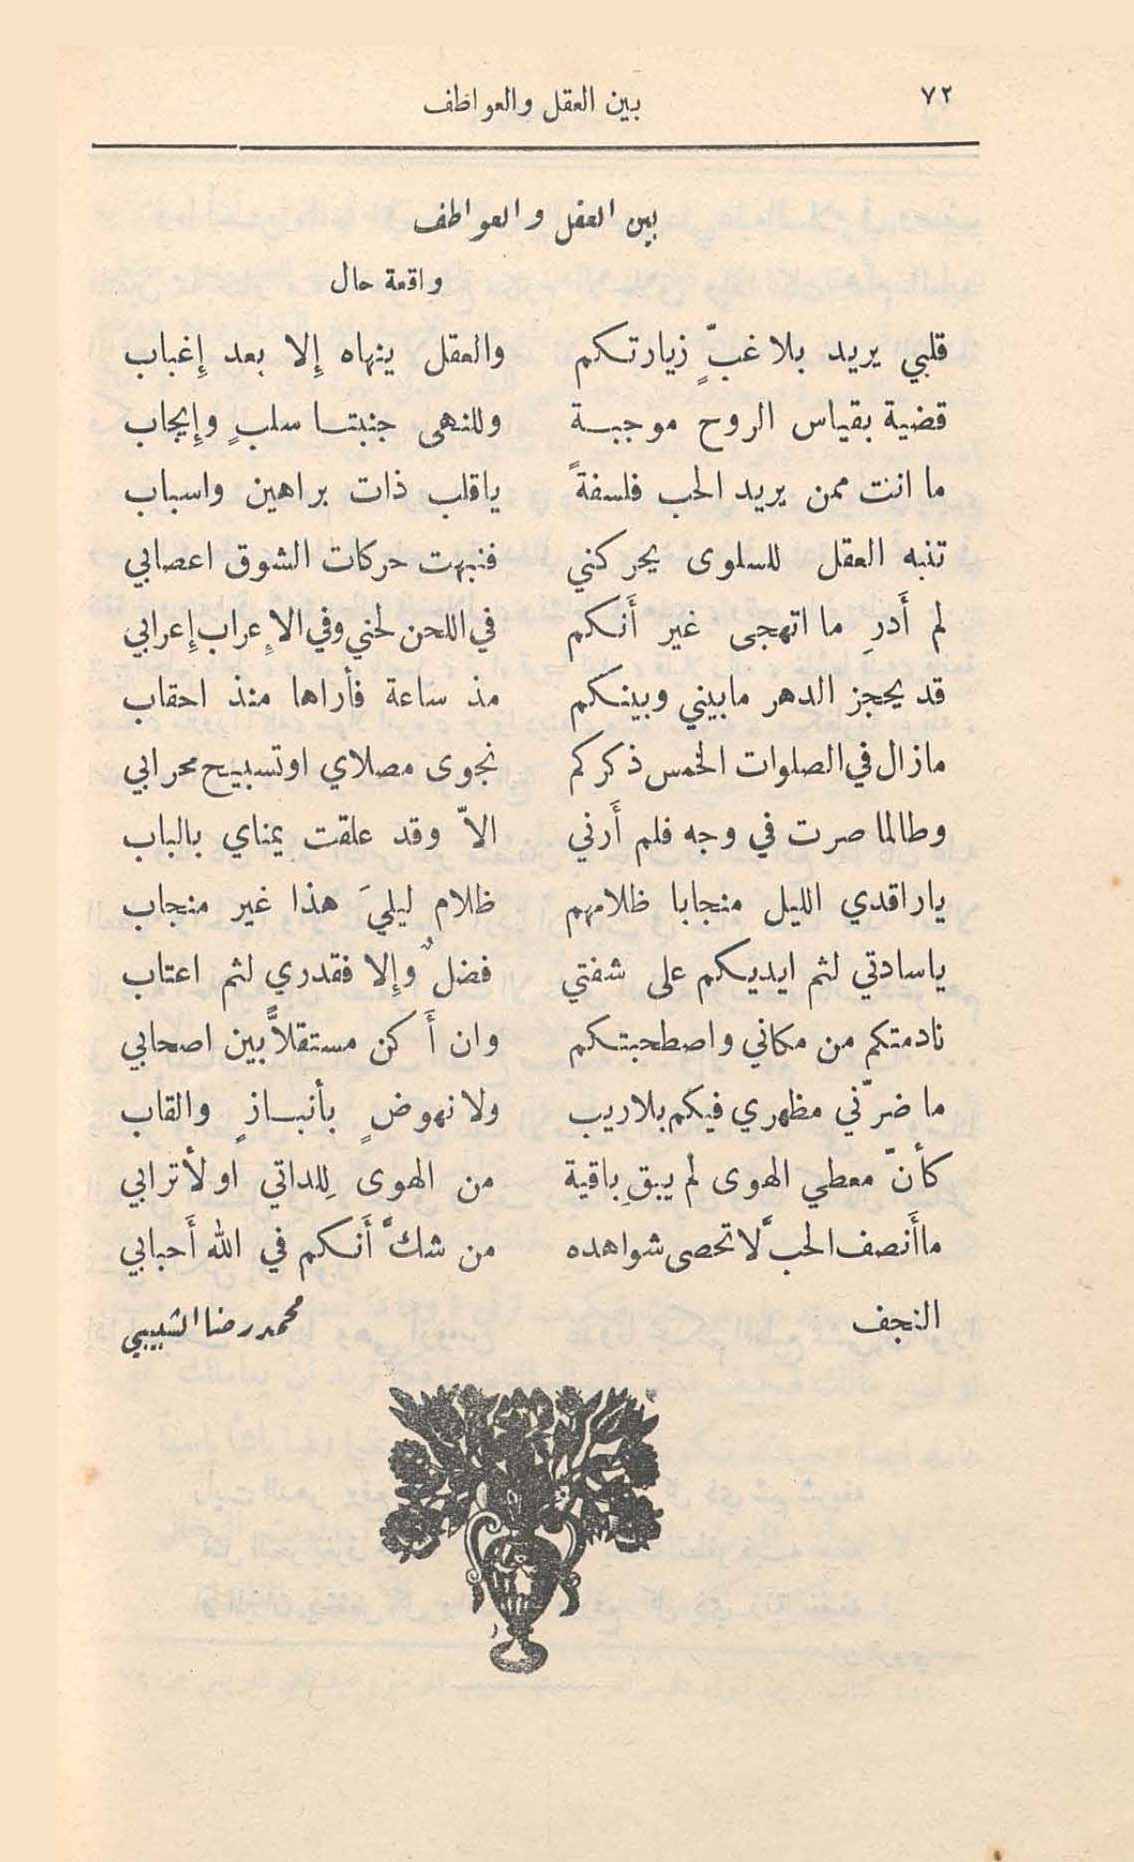 ٧٢ بين العقل والعواطف
بين العقل والعواطف
واقعة حال
قلبي يريد بلا غبٍّ زيارتكم والعقل ينهاه إلا بعد إغباب
قضية بقياس الروح موجبة وللنهى جنبتا سلبٍ وإيجاب
ما انت ممن يريد الحب فلسفةً ياقلب ذات براهين واسباب
تنبه العقل للسلوى يحركني فنبهت حركات الشوق اعصابي
لم أَدرِ ما اتهجى غير أَنكم في اللحن لحني وفي الإعراب إعرابي
قد يحجز الدهر مابيني وبينكم مذ ساعة فأراها منذ احقاب
مازال في الصلوات الخمس ذكركم نجوى مصلاي اوتسبيح محرابي
وطالما صرت في وجه فلم أَرني الاّ وقد علقت يمناي بالباب
ياراقدي الليل منجابا ظلامهم ظلام ليليَ هذا غير منجاب
ياسادتي لثم ايديكم على شفتي فضلٌ وإلا فقدري لثم اعتاب
نادمتكم من مكاني واصطحبتكم وان أَكن مستقلاًّ بين اصحابي
ما ضرّني مظهري فيكم بلاريب ولا نهوضٍ بأنبازٍ والقاب
كأنّ معطي الهوى لم يبقِ باقية من الهوى لِلداتي اولأترابي
ماأَنصف الحبَّ لاتحصى شواهده من شكَّ أَنكم في الله أَحبابي
النجف محمد رضا الشبيبي